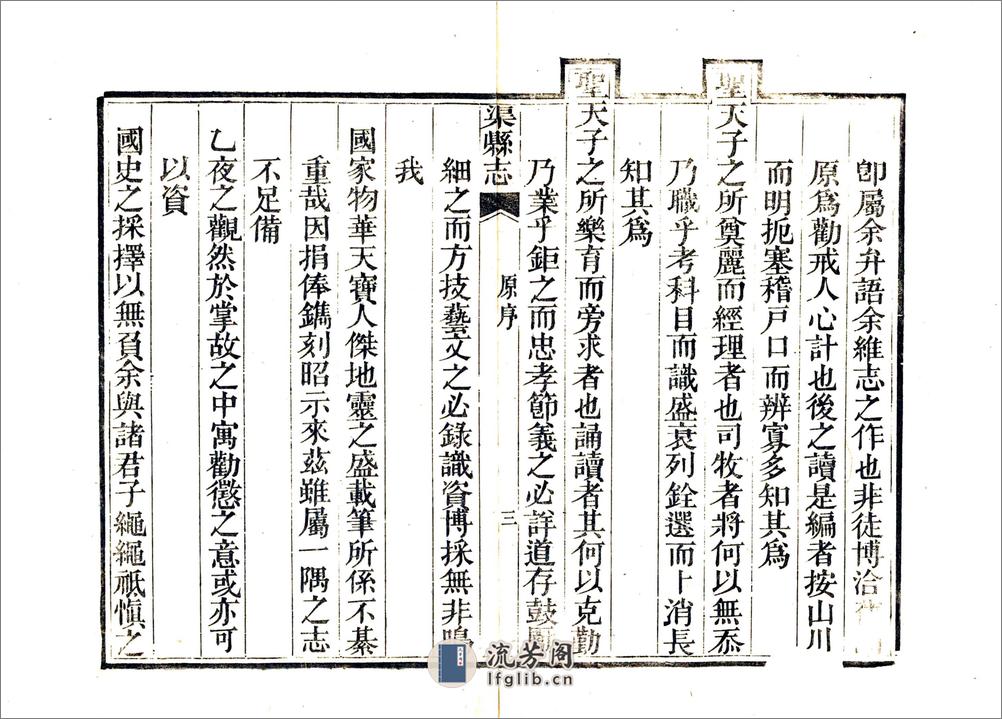 卽屬余弁語余維志之作也非徒博洽
原爲勸戒人心計也後之讀是編者按山川
而明扼塞稽戸口而辨寡多知其爲
聖天子之所奠麗而經理者也司牧者將何以無忝
乃職乎考科目而識盛衰列銓選而卜消長
知其爲
聖天子之所樂育而旁求者也誦讀者其何以克勤
乃業乎鉅之而忠孝節義之必詳道存鼓
渠縣志
原序
三
細之而方技藝文之必錄識資博採無非鳴
我
國家物華天寶人傑地靈之盛載筆所係不綦
重哉因捐俸鐫刻昭示來茲雖屬一隅之志
不足備
乙夜之觀然於掌故之中寓勸懲之意或亦可
以資
國史之採擇以無負余與諸君子繩繩祗愼之
流芳阁
lfglib.cn